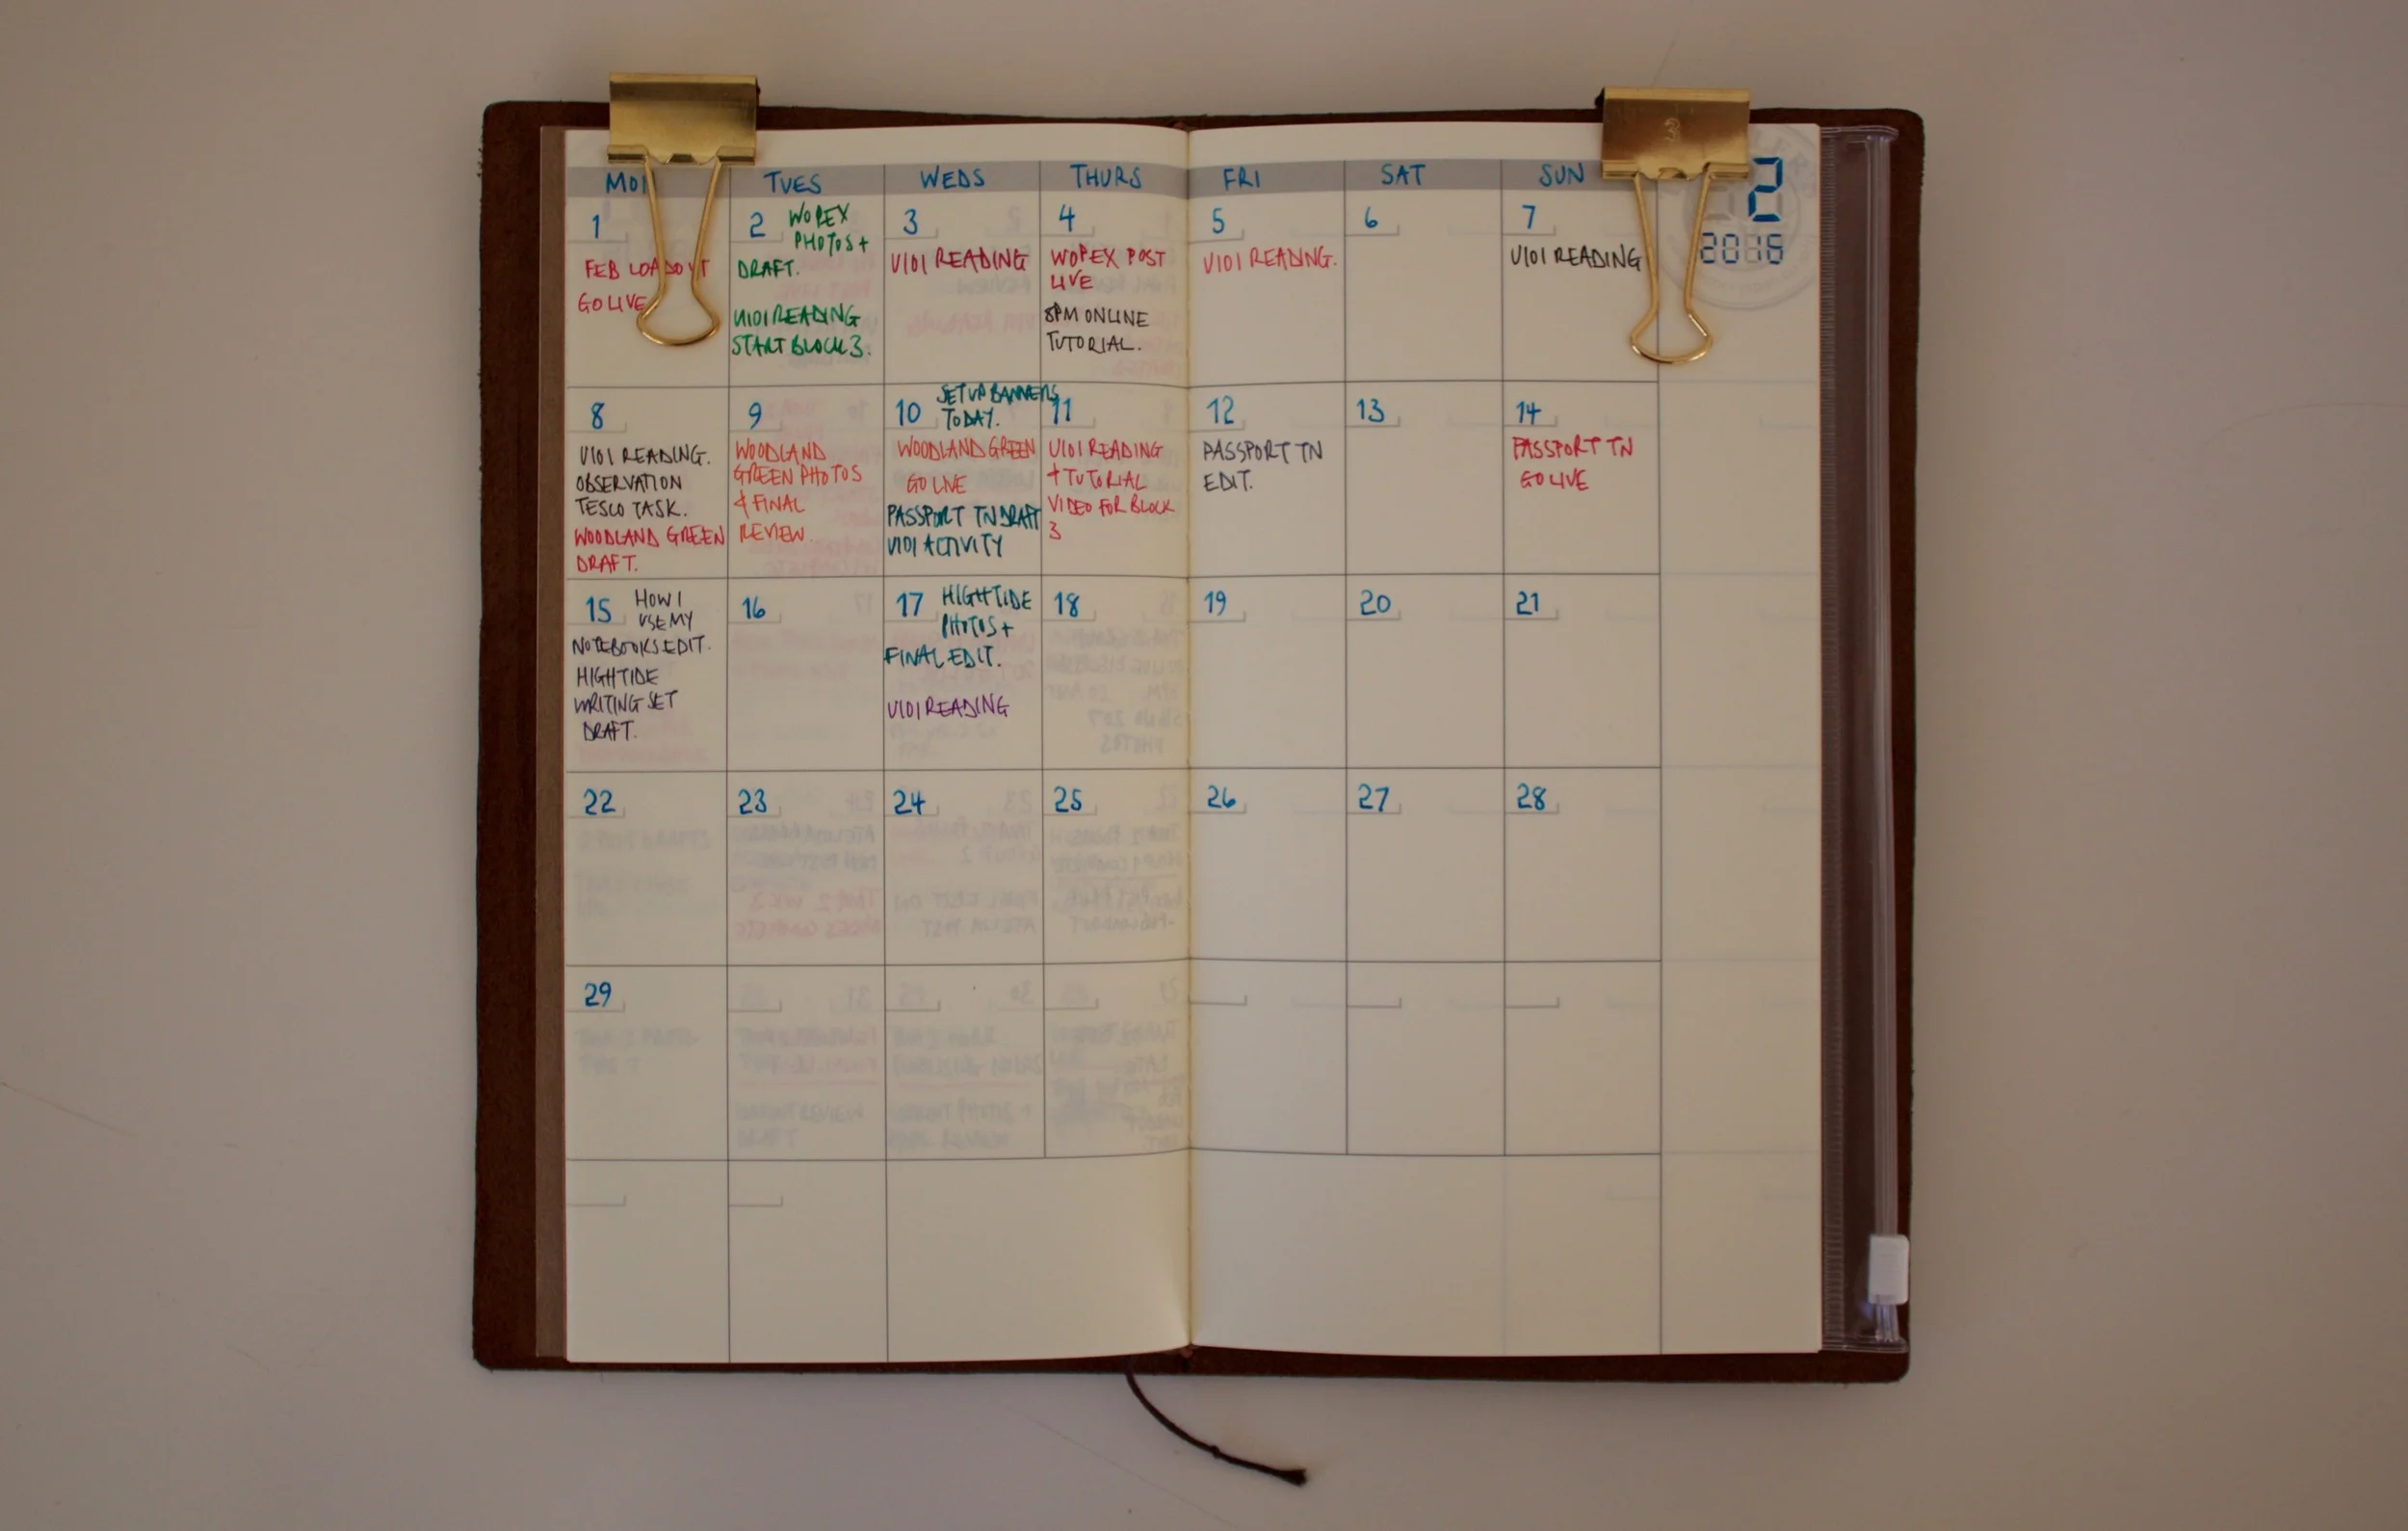 TUES
WEDS
THURS
FRI
SAT
SUN
2
2016
1
FEB LOADOUT
GO LIVE
2 WOPEX
PHOTOS +
DRAFT.
U101 READING
START BLOCK 3.
3
U101 READING
4
WOPEX POST
LIVE
8PM ONLINE
TUTORIAL.
5
U101 READING.
6
7
U101 READING
8
U101 READING.
OBSERVATION
TESCO TASK.
WOODLAND GREEN
DRAFT.
9
WOODLAND
GREEN PHOTOS
& FINAL
REVIEW.
10 SET UP BANNERS
TODAY.
WOODLAND GREEN
GO LIVE
PASSPORT TN DRAFT
U101 ACTIVITY
11
U101 READING
+ TUTORIAL
VIDEO FOR BLOCK
3
12
PASSPORT TN
EDIT.
13
14
PASSPORT TN
GO LIVE
15 HOW I
USE MY
NOTEBOOKS EDIT.
HIGHTIDE
WRITING SET
DRAFT.
16
17 HIGHTIDE
PHOTOS +
FINAL EDIT.
U101 READING
18
19
20
21
22
23
24
25
26
27
28
29